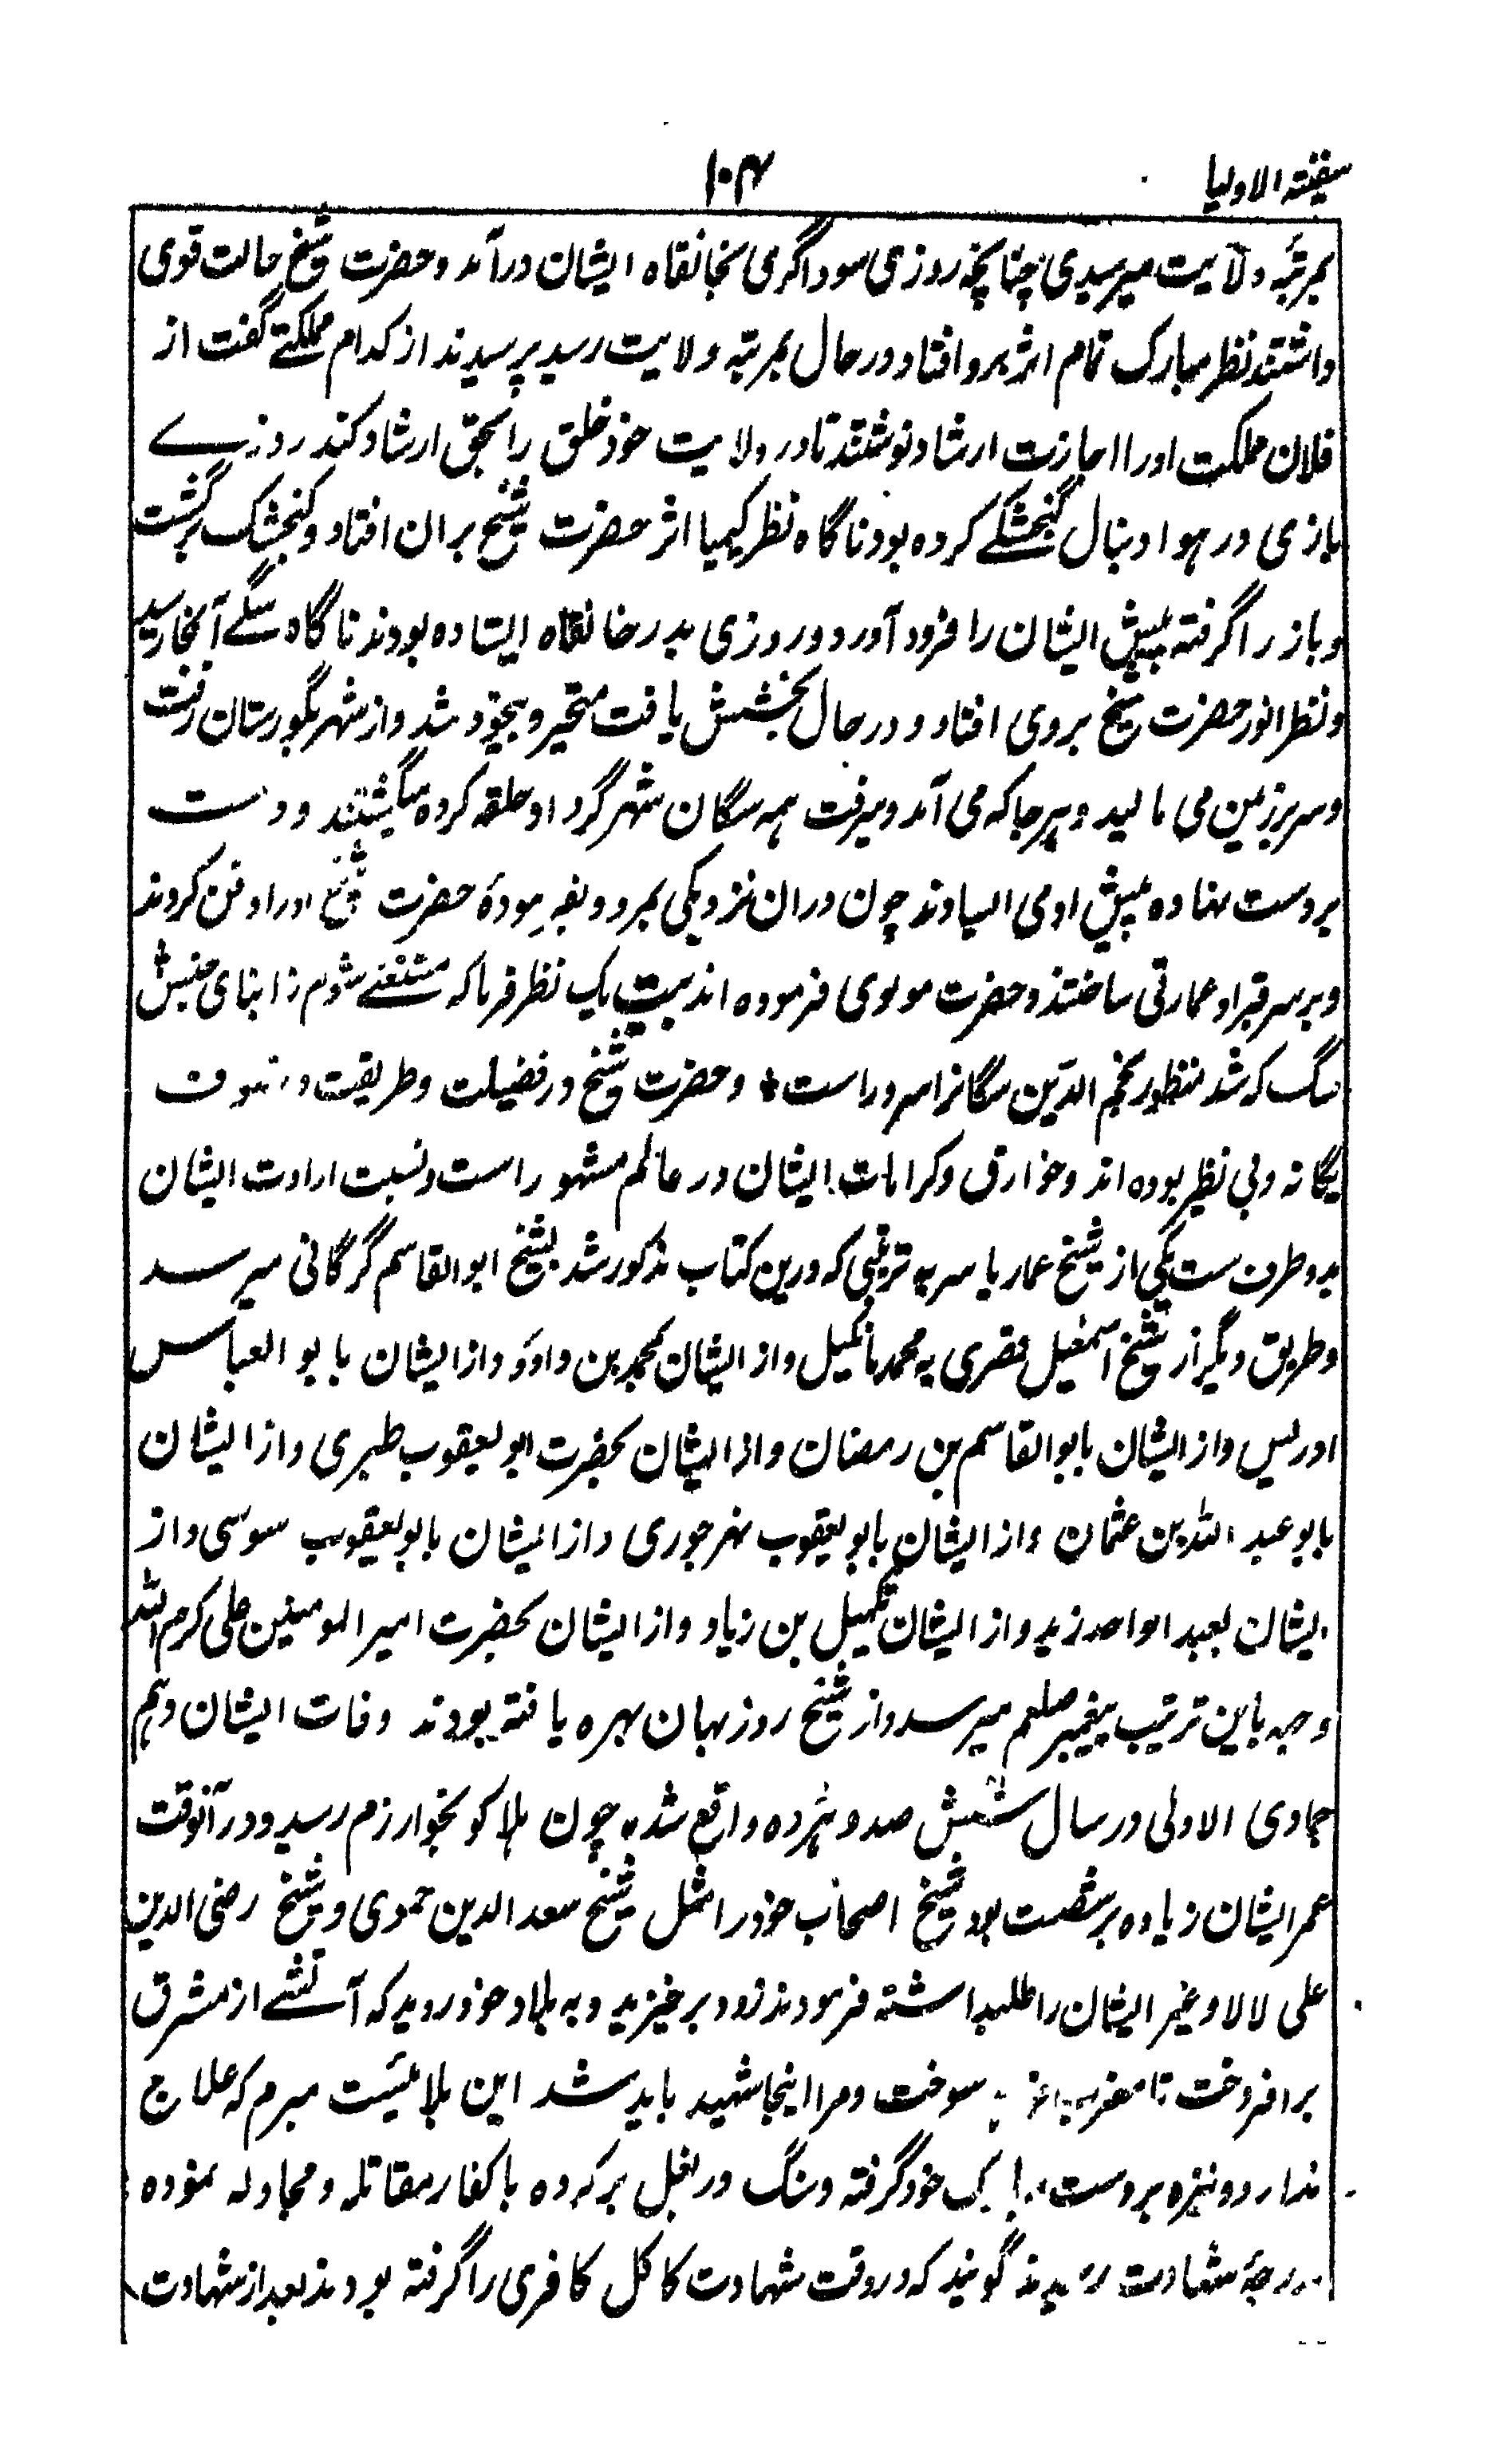 سفینته الاولیا
۱۰۴
بمرتبه ولایت میرسیدی چنانچه روزی سوداگری بخانقاه ایشان درآمد و حضرت شیخ حالت قوی
داشتند نظر مبارک تمام اثر برو افتاد و در حال بمرتبه ولایت رسید پرسیدند از کدام مملکتے گفت از
فلان مملکت او را اجازت ارشاد نوشتند تا در ولایت خود خلق را بحق ارشاد کند روزے
بازی در هوا دنبال گنجشکے کرده بود ناگاه نظر کیمیا اثر حضرت شیخ بران افتاد و گنجشک برگشت
و باز را گرفته پیش ایشان را فرود آورد و روزی بدر خانقاه ایستاده بودند ناگاه سگے آنجا رسید
و نظر انور حضرت شیخ بروی افتاد و در حال بخشش یافت متحیر و بیخود شد و از شهر بگورستان رفت
و سر بر زمین می مالید و بهر جا که می آمد و میرفت همه سگان شهر گرد او حلقه کرده میگشتند و دست
بر دست نهاده پیش او می ایستادند چون دران نزدیکی بمرد و بفرمودهٔ حضرت شیخ او را دفن کردند
و بر سر قبر او عمارتی ساختند و حضرت مولوی فرموده اند بیت یک نظر فرما که مستغنے شوم ز ابنای جنس
سگ که شد منظور نجم الدین سگانرا سرور است ٭ و حضرت شیخ در فضیلت و طریقت و تصوف
یگانه و بی نظیر بوده اند و خوارق و کرامات ایشان در عالم مشهور است و نسبت ارادت ایشان
بدو طرف ست یکی از شیخ عمار یاسر به ترتیبی که درین کتاب مذکور شد بشیخ ابوالقاسم گرگانی میرسد
و طریق دیگر از شیخ اسمعیل قصری به محمد مانکیل و از ایشان بمحمد بن داود و از ایشان بابو العباس
ادریس و از ایشان بابوالقاسم بن رمضان و از ایشان بحضرت ابو یعقوب طبری و از ایشان
بابو عبد الله بن عثمان و از ایشان بابو یعقوب نهرجوری و از ایشان بابو یعقوب سوسی و از
ایشان بعبد الواحد زید و از ایشان بکمیل بن زیاد و از ایشان بحضرت امیر المومنین علی کرم الله
وجهه باین ترتیب پیغمبر صلعم میرسد و از شیخ روزبهان بهره یافته بودند وفات ایشان دهم
جمادی الاولی در سال شش صد و هژده واقع شده چون هلاکو بخوارزم رسید و در آنوقت
عمر ایشان زیاده بر شصت بود شیخ اصحاب خود را مثل شیخ سعد الدین حموی و شیخ رضی الدین
علی لالا و غیر ایشان را طلبداشته فرمودند زود برخیزید و به بلاد خود روید که آتشے از مشرق
برافروخت تا مغرب سوخت و مرا اینجا شهید باید شد این بلائیست مبرم که علاج
ندارد و نیزه بدست خود گرفته و سنگ در بغل پر کرده با کفار مقاتله و مجادله نموده
درجهٔ شهادت رسیدند گویند که در وقت شهادت کاکل کافری را گرفته بودند بعد از شهادت